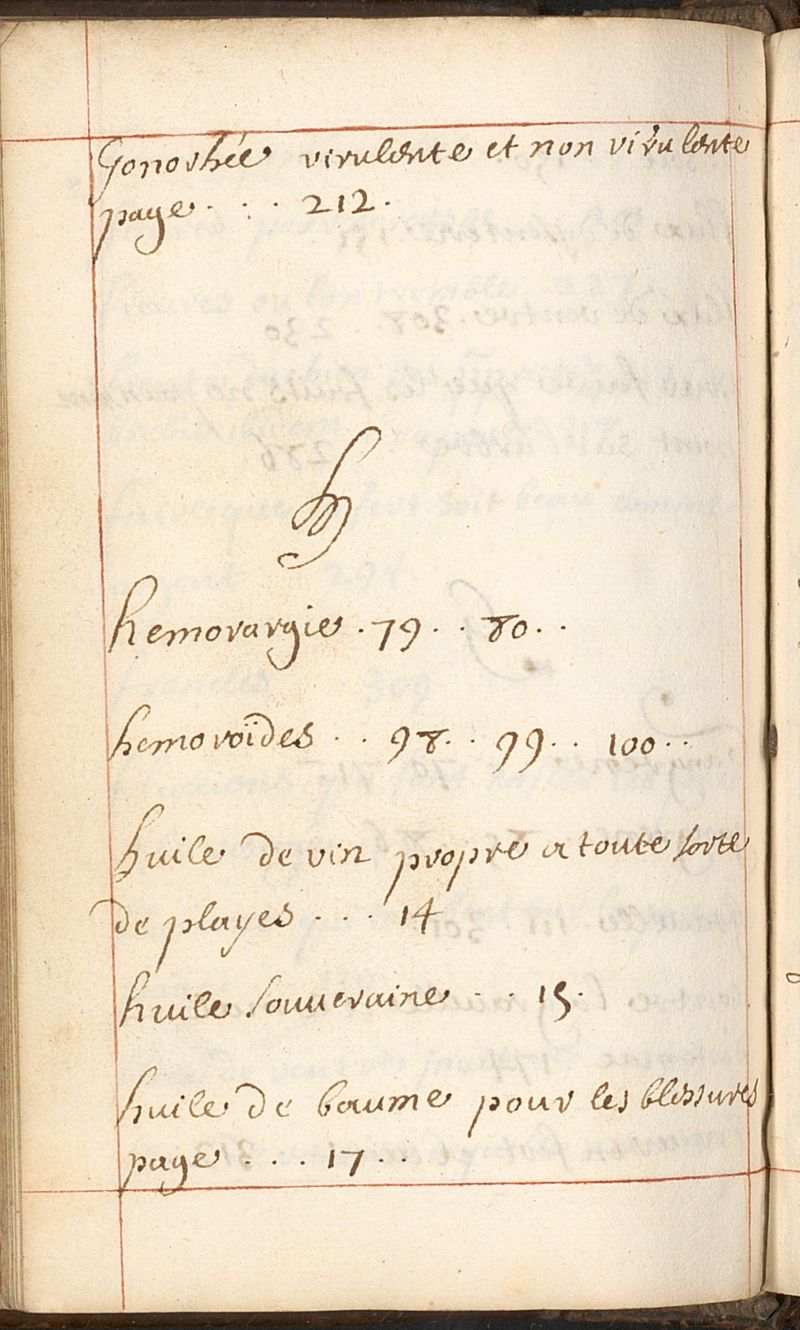 Gonorhée virulente et non virulente
page . . . 212.
h
hemorargie . 79 . . 80 . .
hemoroïdes . . 98 . . 99 . . 100 . .
huile de vin propre a toute sorte
de playes . . . 14
huile souveraine . . . 15 .
huile de baume pour les blessures
page . . . 17 . .